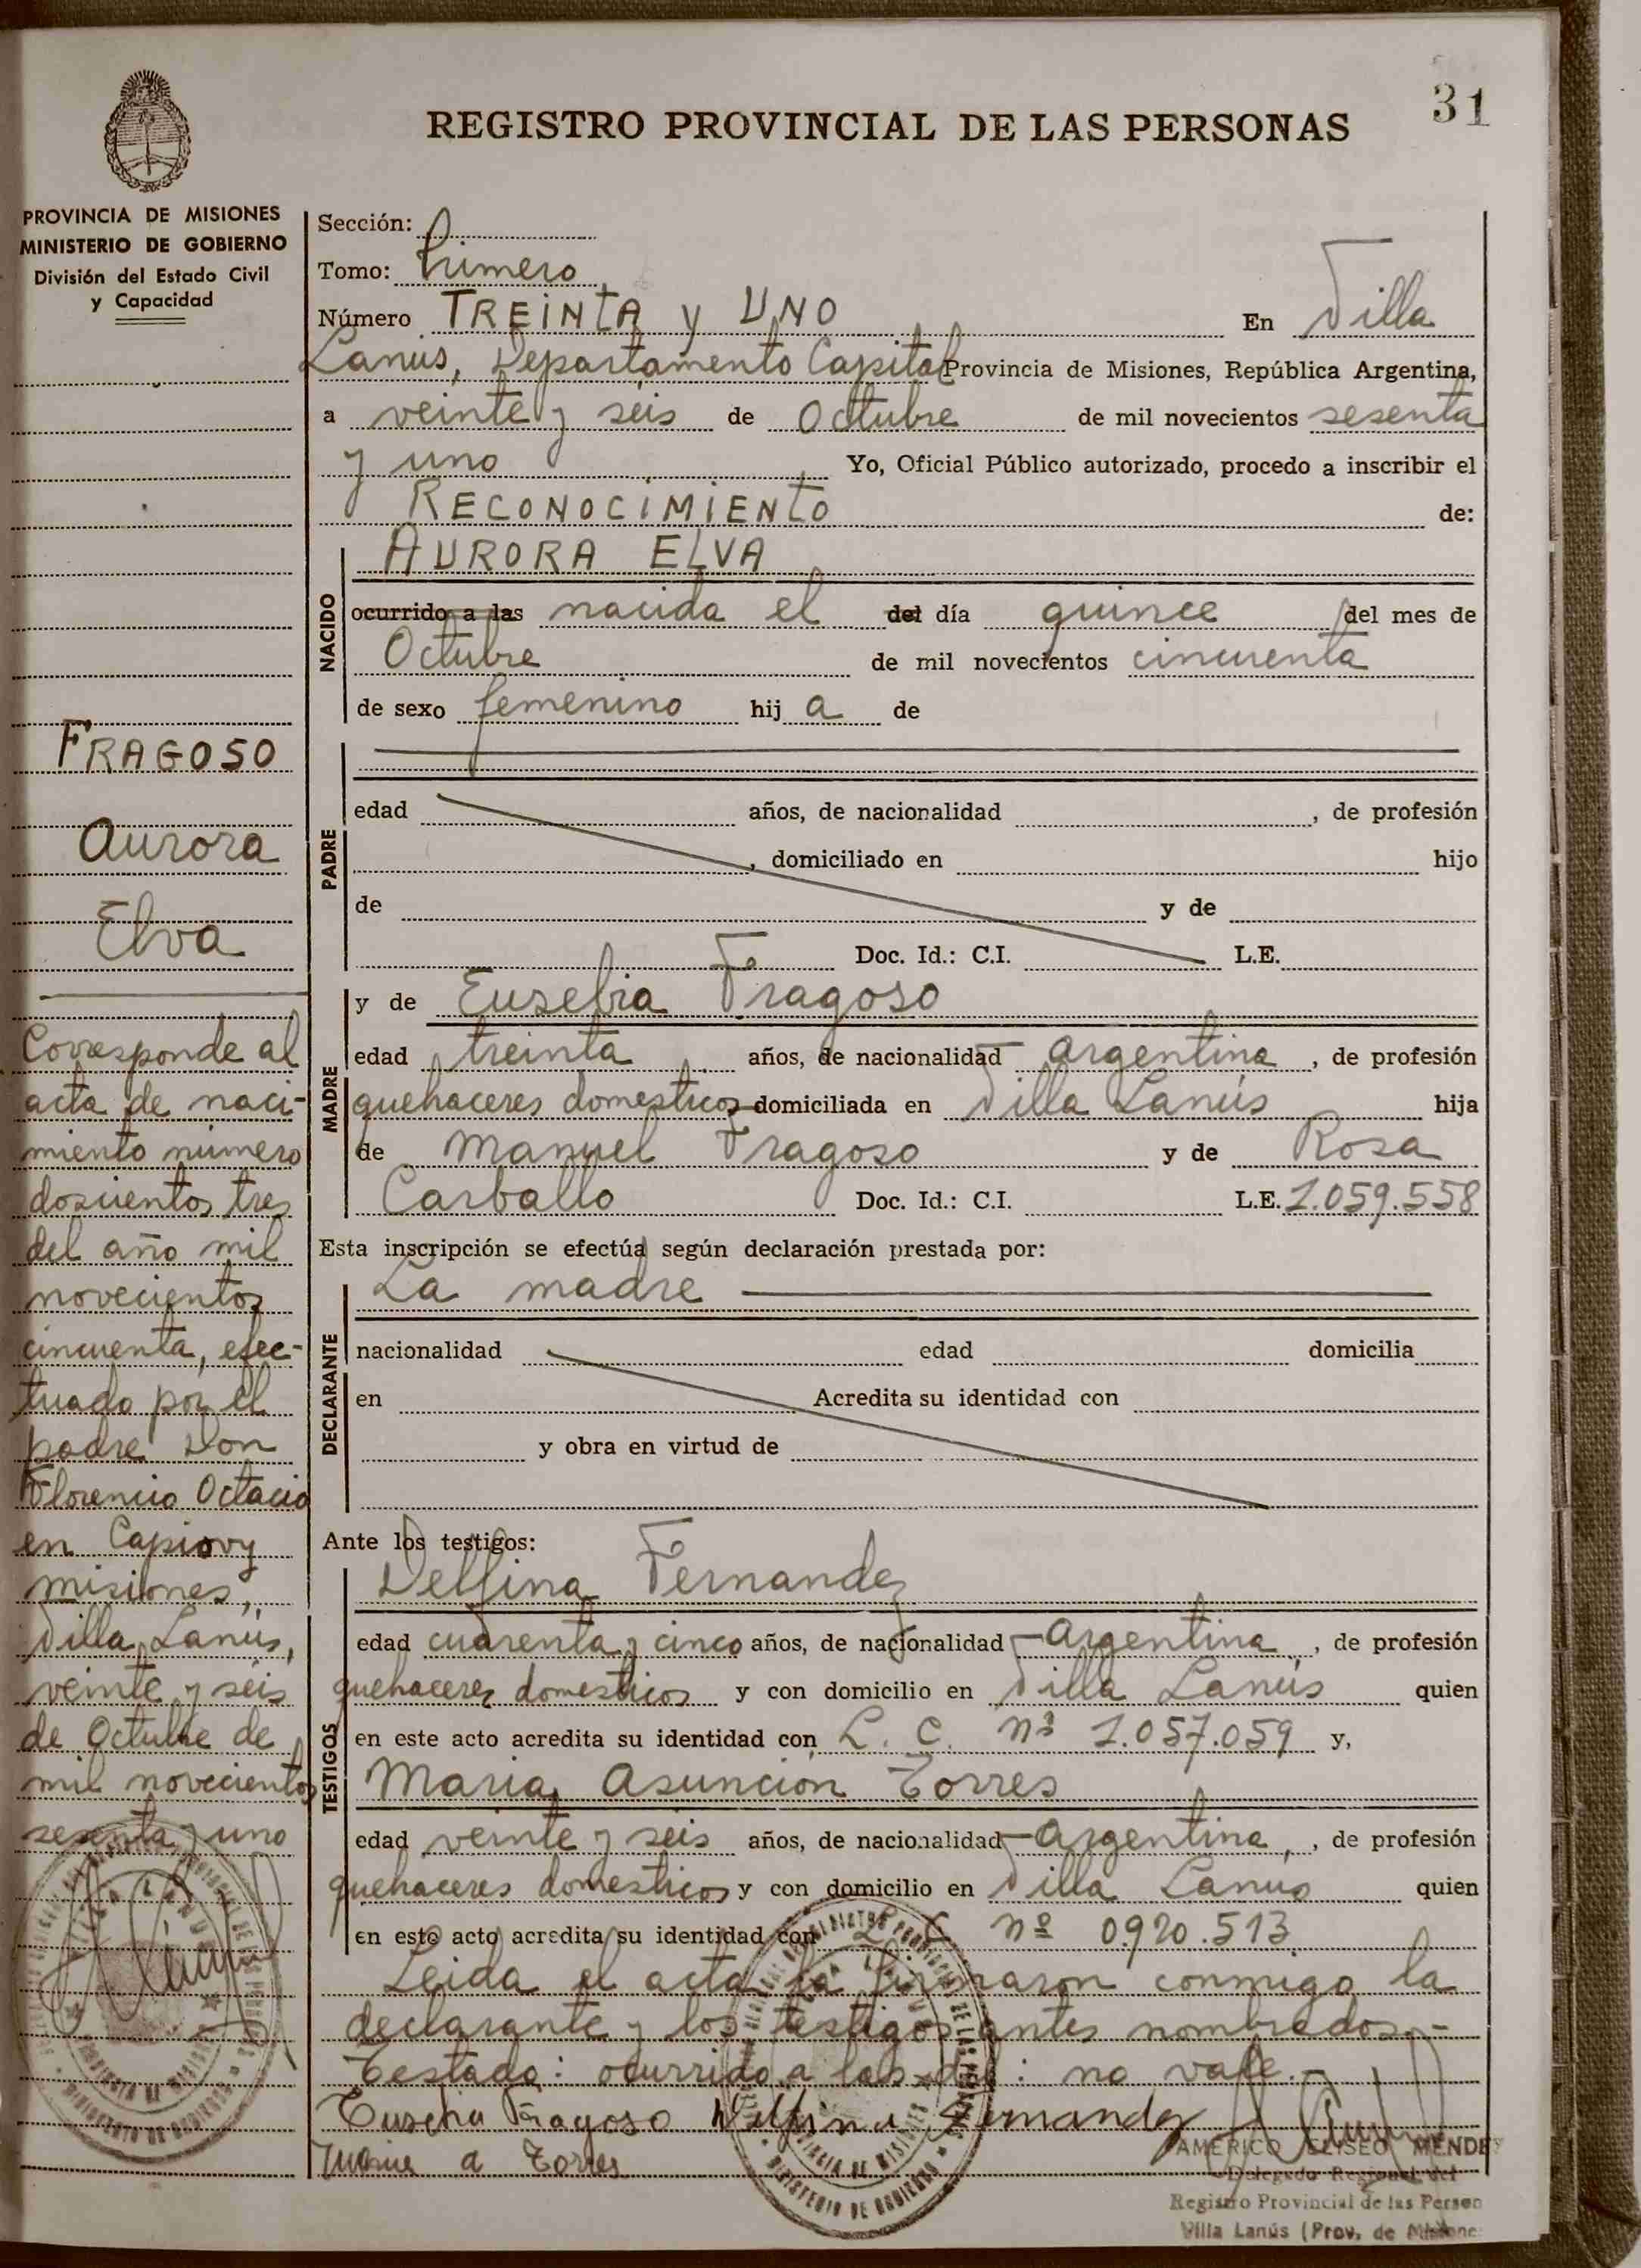 31
REGISTRO PROVINCIAL DE LAS PERSONAS
PROVINCIA DE MISIONES
MINISTERIO DE GOBIERNO
División del Estado Civil
y Capacidad
FRAGOSO
Aurora
Elva
Corresponde al
acta de naci-
miento número
doscientos tres
del año mil
novecientos
cincuenta, efec-
tuado por el
padre Don
Florencio Octacio
en Capiovy
misiones,
Villa Lanús,
veinte y seis
de Octubre de
mil novecientos
sesenta y uno
Sección:
Tomo: Primero
Número TREINTA y UNO En Villa
Lanús, Departamento Capital Provincia de Misiones, República Argentina,
a veinte y seis de Octubre de mil novecientos sesenta
y uno Yo, Oficial Público autorizado, procedo a inscribir el
RECONOCIMIENTO de:
NACIDO
AURORA ELVA
ocurrido a las nacida el del día quince del mes de
Octubre de mil novecientos cincuenta
de sexo femenino hij a de
PADRE
edad años, de nacionalidad , de profesión
, domiciliado en hijo
de y de
Doc. Id.: C.I. L.E.
MADRE
y de Eusebia Fragoso
edad treinta años, de nacionalidad argentina , de profesión
quehaceres domesticos domiciliada en Villa Lanús hija
de Manuel Fragoso y de Rosa
Carballo Doc. Id.: C.I. L.E. 1.059.558
Esta inscripción se efectúa según declaración prestada por:
DECLARANTE
La madre
nacionalidad edad domicilia
en Acredita su identidad con
y obra en virtud de
Ante los testigos:
TESTIGOS
Delfina Fernandez
edad cuarenta y cinco años, de nacionalidad Argentina , de profesión
quehaceres domesticos y con domicilio en Villa Lanús quien
en este acto acredita su identidad con L. C. nº 1.057.059 y,
Maria Asuncion Torres
edad veinte y seis años, de nacionalidad Argentina , de profesión
quehaceres domesticos y con domicilio en Villa Lanus quien
en este acto acredita su identidad con L. C nº 0.920.513
Leida el acta la firmaron conmigo la
declarante y los testigos antes nombrados.-
Testado: ocurrido a las - del: no vale.-
Eusebia Fragoso Delfina Fernandez
Maria a Torres
AMERICO ELISEO MENDEZ
Delegado Regional del
Registro Provincial de las Person
Villa Lanús (Prov. de Misione